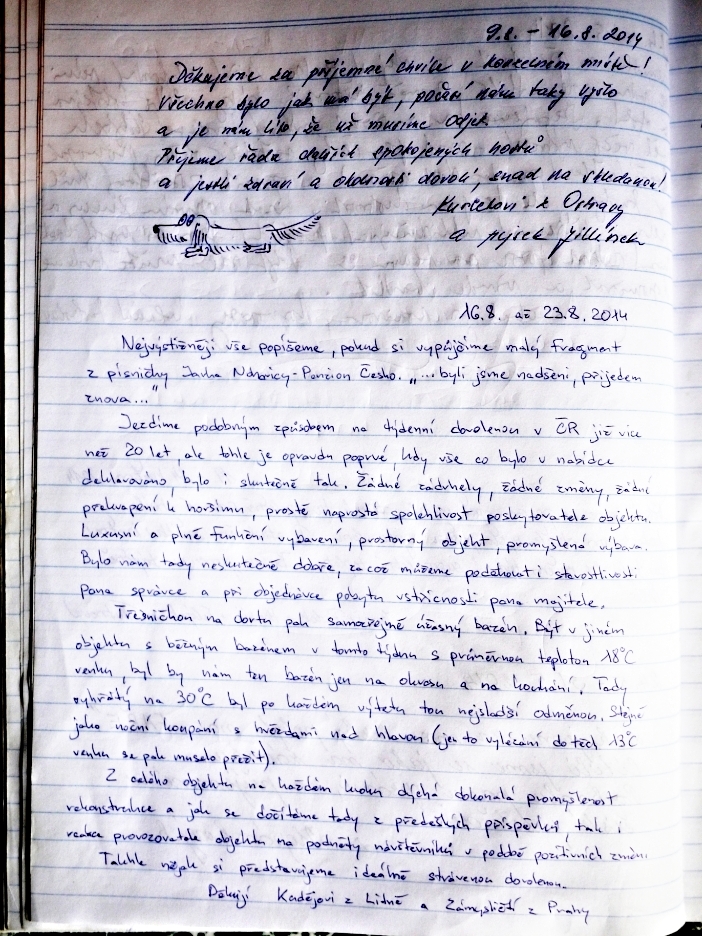 9.8. - 16.8. 2014
Děkujeme za příjemné chvíle v kouzelném místě!
Všechno bylo jak má být, počasí nám taky vyšlo
a je nám líto, že už musíme odjet.
Přijeme řadu dalších spokojených hostů
a jestli zdraví a okolnosti dovolí, snad na shledanou!
z Ostravy
a pejsek
16.8. až 23.8. 2014
Nejvýstižněji vše popíšeme, pokud si vypůjčíme malý fragment
z písničky Jarka Nohavicy - Penzion Česko. "...byli jsme nadšeni, přijedem
znova..."
Jezdíme podobným způsobem na týdenní dovolenou v ČR již více
než 20 let, ale tohle je opravdu poprvé, kdy vše co bylo v nabídce
deklarováno, bylo i skutečně tak. Žádné zádrhely, žádné změny, žádné
překvapení k horšímu, prostě naprostá spolehlivost poskytovatele objektu.
Luxusní a plně funkční vybavení, prostorný objekt, promyšlená výbava.
Bylo nám tady neskutečně dobře, za což můžeme poděkovat i starostlivosti
pana správce a při objednávce pobytu vstřícnosti pana majitele.
Třešničkou na dortu pak samozřejmě úžasný bazén. Být v jiném
objektu s běžným bazénem v tomto týdnu s průměrnou teplotou 18°C
venku, byl by nám ten bazén jen na okrasu a na koukání. Tady
vyhřátý na 30°C byl po každém výletu tou nejsladší odměnou. Stejně
jako noční koupání s hvězdami nad hlavou (jen to vylézání do těch 13°C
venku se pak muselo přežít).
Z celého objektu na každém kroku dýchá dokonalá promyšlenost
rekonstrukce a jak se dočítáme tady z předešlých příspěvků, tak i
reakce provozovatele objektu na podněty návštěvníků v podobě pozitivních změn.
Takhle nějak si představujeme ideálně strávenou dovolenou.
Děkují Kadějovi z Lidně a z Prahy